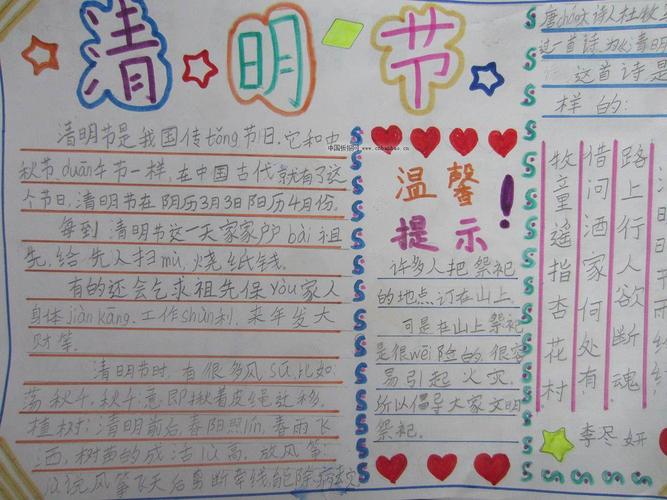 清明节
清明节是我国传tǒng节日。它和中
秋节duān午节一样，在中国古代就有了这
个节日。清明节在阴历3月3日阳历4月份。
每到清明节这一天家家户户bài祖
先，给先人扫mù，烧纸钱。
有的还会乞求祖先保yòu家人
身体jiàn kāng，工作shùn利，来年发大
财等。
清明节时，有很多风sú，比如
荡秋千，秋千意，即揪着皮绳迁移。
植树：清明前后，春阳照lín，春雨飞
洒，树苗的成活
高，放风筝：
风筝飞天后剪断牵线，能除病
温馨
提示！
许多人把祭祀
的地点订在山上。
可是在山上祭祀
是很wēi险的很容
易引起火灾，
所以倡导大家文明
祭祀。
唐cháo大诗人杜牧
一首诗
这首诗是
样的：
路上行人欲断魂
借问酒家何处有
牧童遥指杏花村
李冬妍